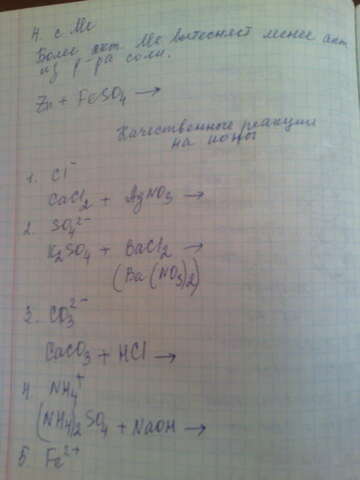 4. с Ме
Более акт. Ме вытесняет менее акт.
из р-ра соли.
Zn + FeSO₄ →
Качественные реакции
на ионы
1. Cl⁻
CaCl₂ + AgNO₃ →
2. SO₄²⁻
K₂SO₄ + BaCl₂ →
(Ba(NO₃)₂)
3. CO₃²⁻
CaCO₃ + HCl →
4. NH₄⁺
(NH₄)₂SO₄ + NaOH →
5. Fe²⁺